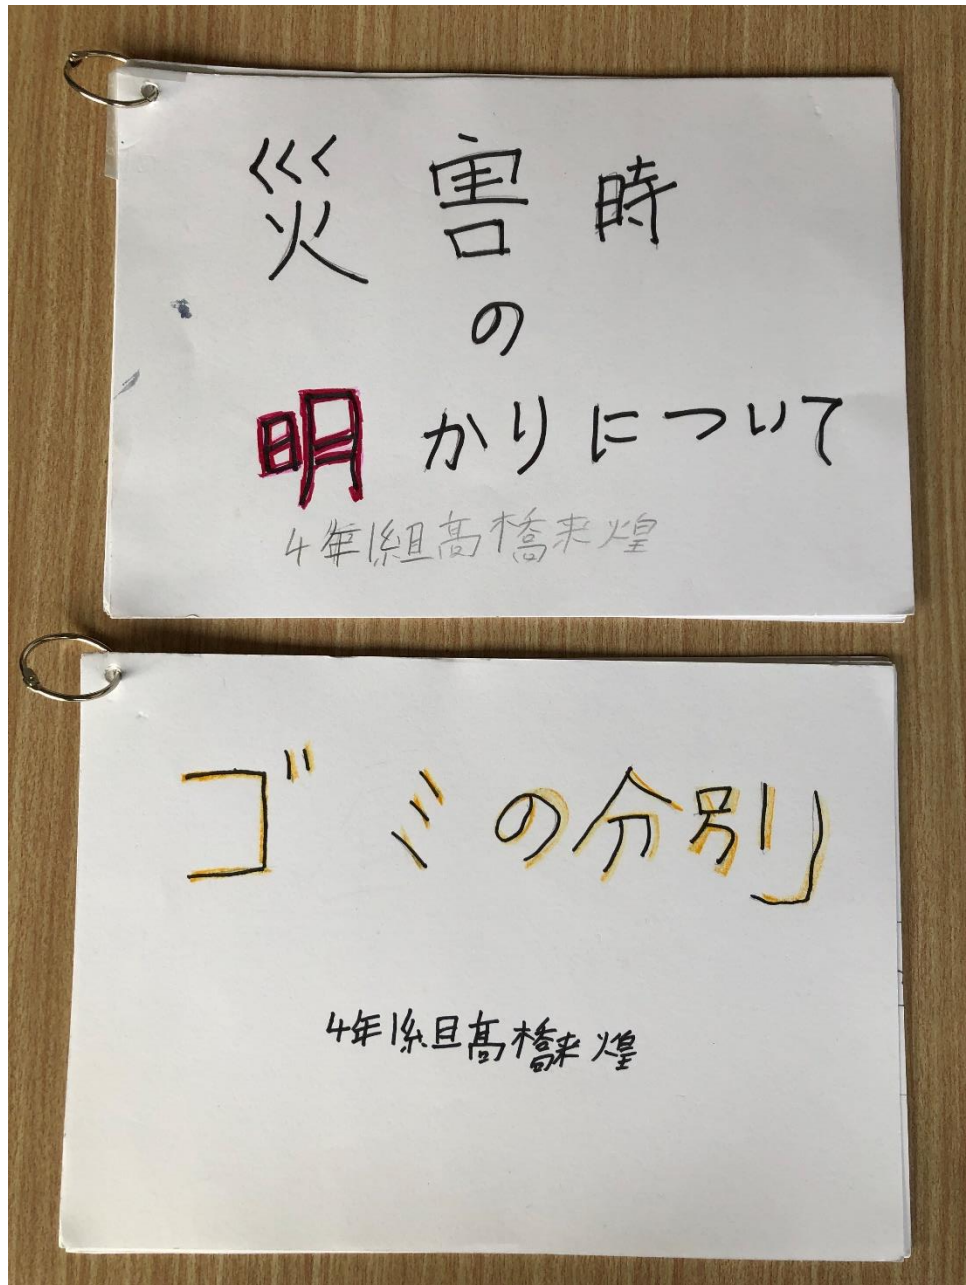 災害時
の
明かりについて
4年1組髙橋来煌
ゴミの分別
4年1組髙橋来煌